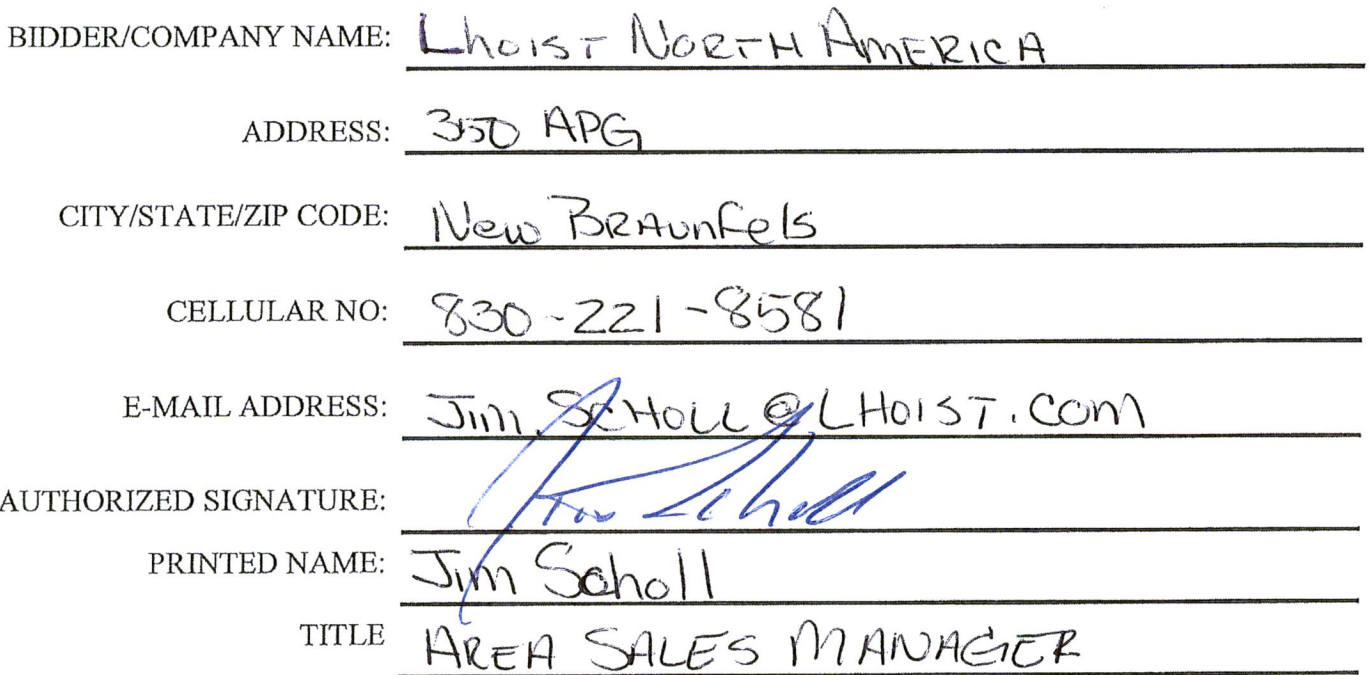 BIDDER/COMPANY NAME: Lhoist North America
ADDRESS: 350 APG
CITY/STATE/ZIP CODE: New Braunfels
CELLULAR NO: 830-221-8581
E-MAIL ADDRESS: Jim.Scholl@LHOIST.COM
AUTHORIZED SIGNATURE: Jim Scholl
PRINTED NAME: Jim Scholl
TITLE AREA SALES MANAGER